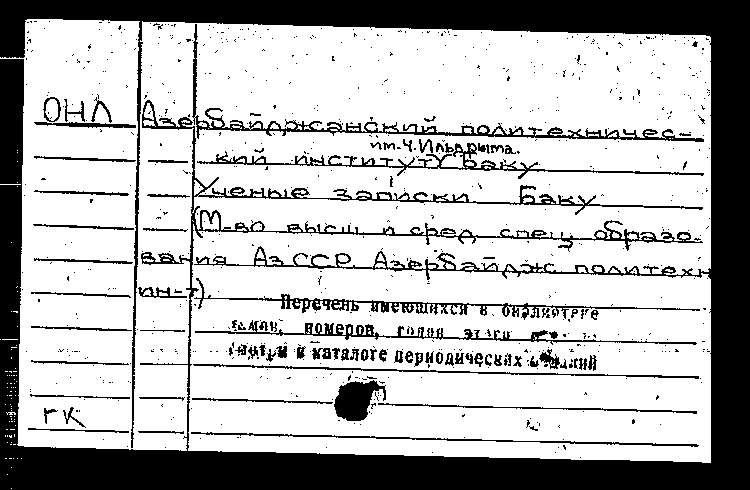 ОНЛ Азербайджанский политехничес-
им. Ч. Ильдрыма.
кий институт Баку
Ученые записки. Баку
(М-во высш. и сред. спец. образо-
вания АзССР. Азербайдж. политехн
ин-т).
Перечень имеющихся в библиотеке
томов, номеров, годов этого
смотри в каталоге периодических изданий
ГК